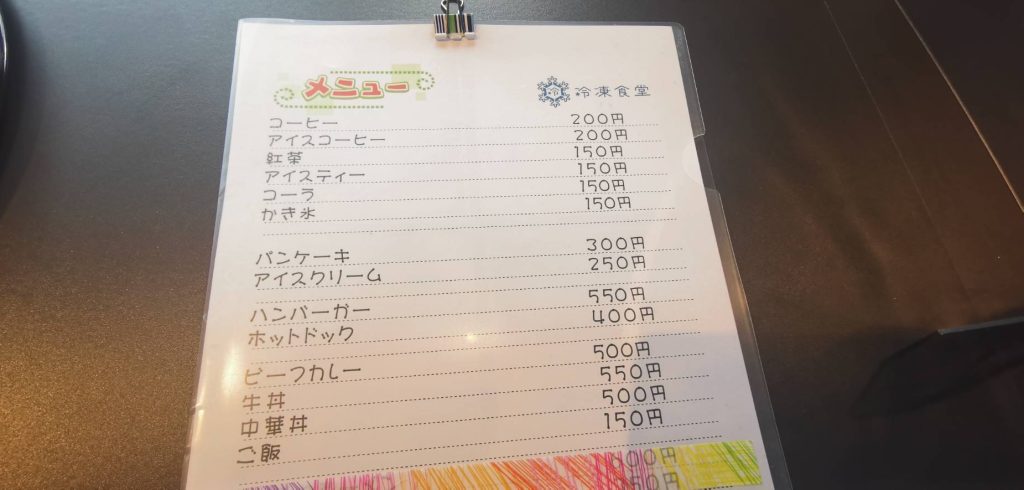 メニュー
冷凍食堂
コーヒー 200円
アイスコーヒー 200円
紅茶 150円
アイスティー 150円
コーラ 150円
かき氷 150円
パンケーキ 300円
アイスクリーム 250円
ハンバーガー 550円
ホットドック 400円
ビーフカレー 500円
牛丼 550円
中華丼 500円
ご飯 150円